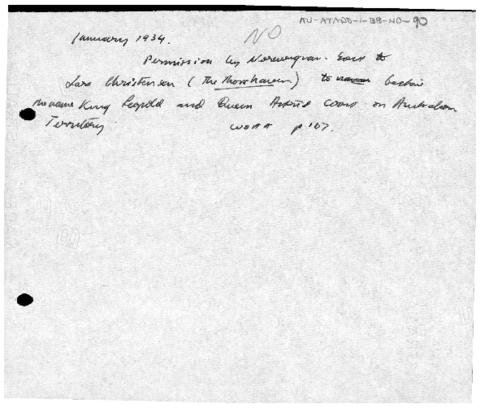 AU-ATADD-1-BB-NO-90
NO
January 1934.
Permission by Norwegian. Govt to
Lars Christensen (The Thorshaven) to
the name King Leopold and Queen Astrid Coast on Australian
Territory
p 107.